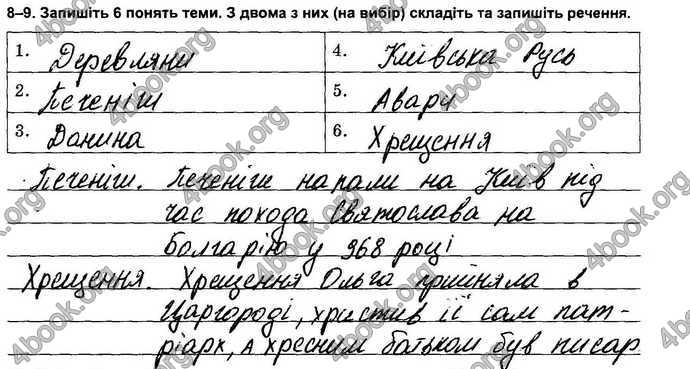 8–9. Запишіть 6 понять теми. З двома з них (на вибір) складіть та запишіть речення.
1. Деревляни
4. Київська Русь
2. Печеніги
5. Авари
3. Данина
6. Хрещення
Печеніги. Печеніги напали на Київ під
час похода Святослава на
Болгарію у 968 році
Хрещення. Хрещення Ольга прийняла в
Царгороді, христив її сам пат-
ріарх, а хресним батьком був писар
4book.org